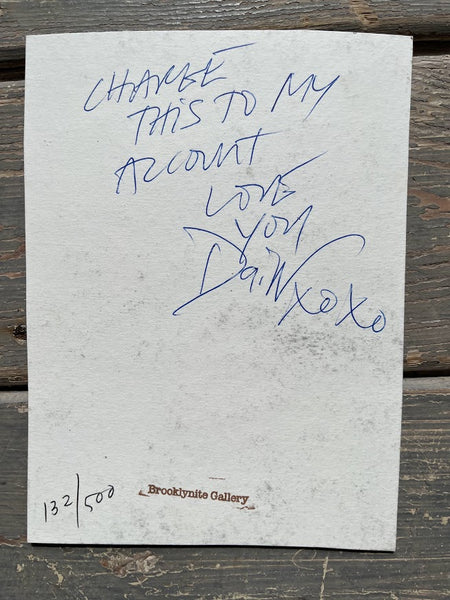 CHARGE
THIS TO MY
ACCOUNT
LOVE
YOU
DAIN
XOXO
132/500
Brooklynite Gallery